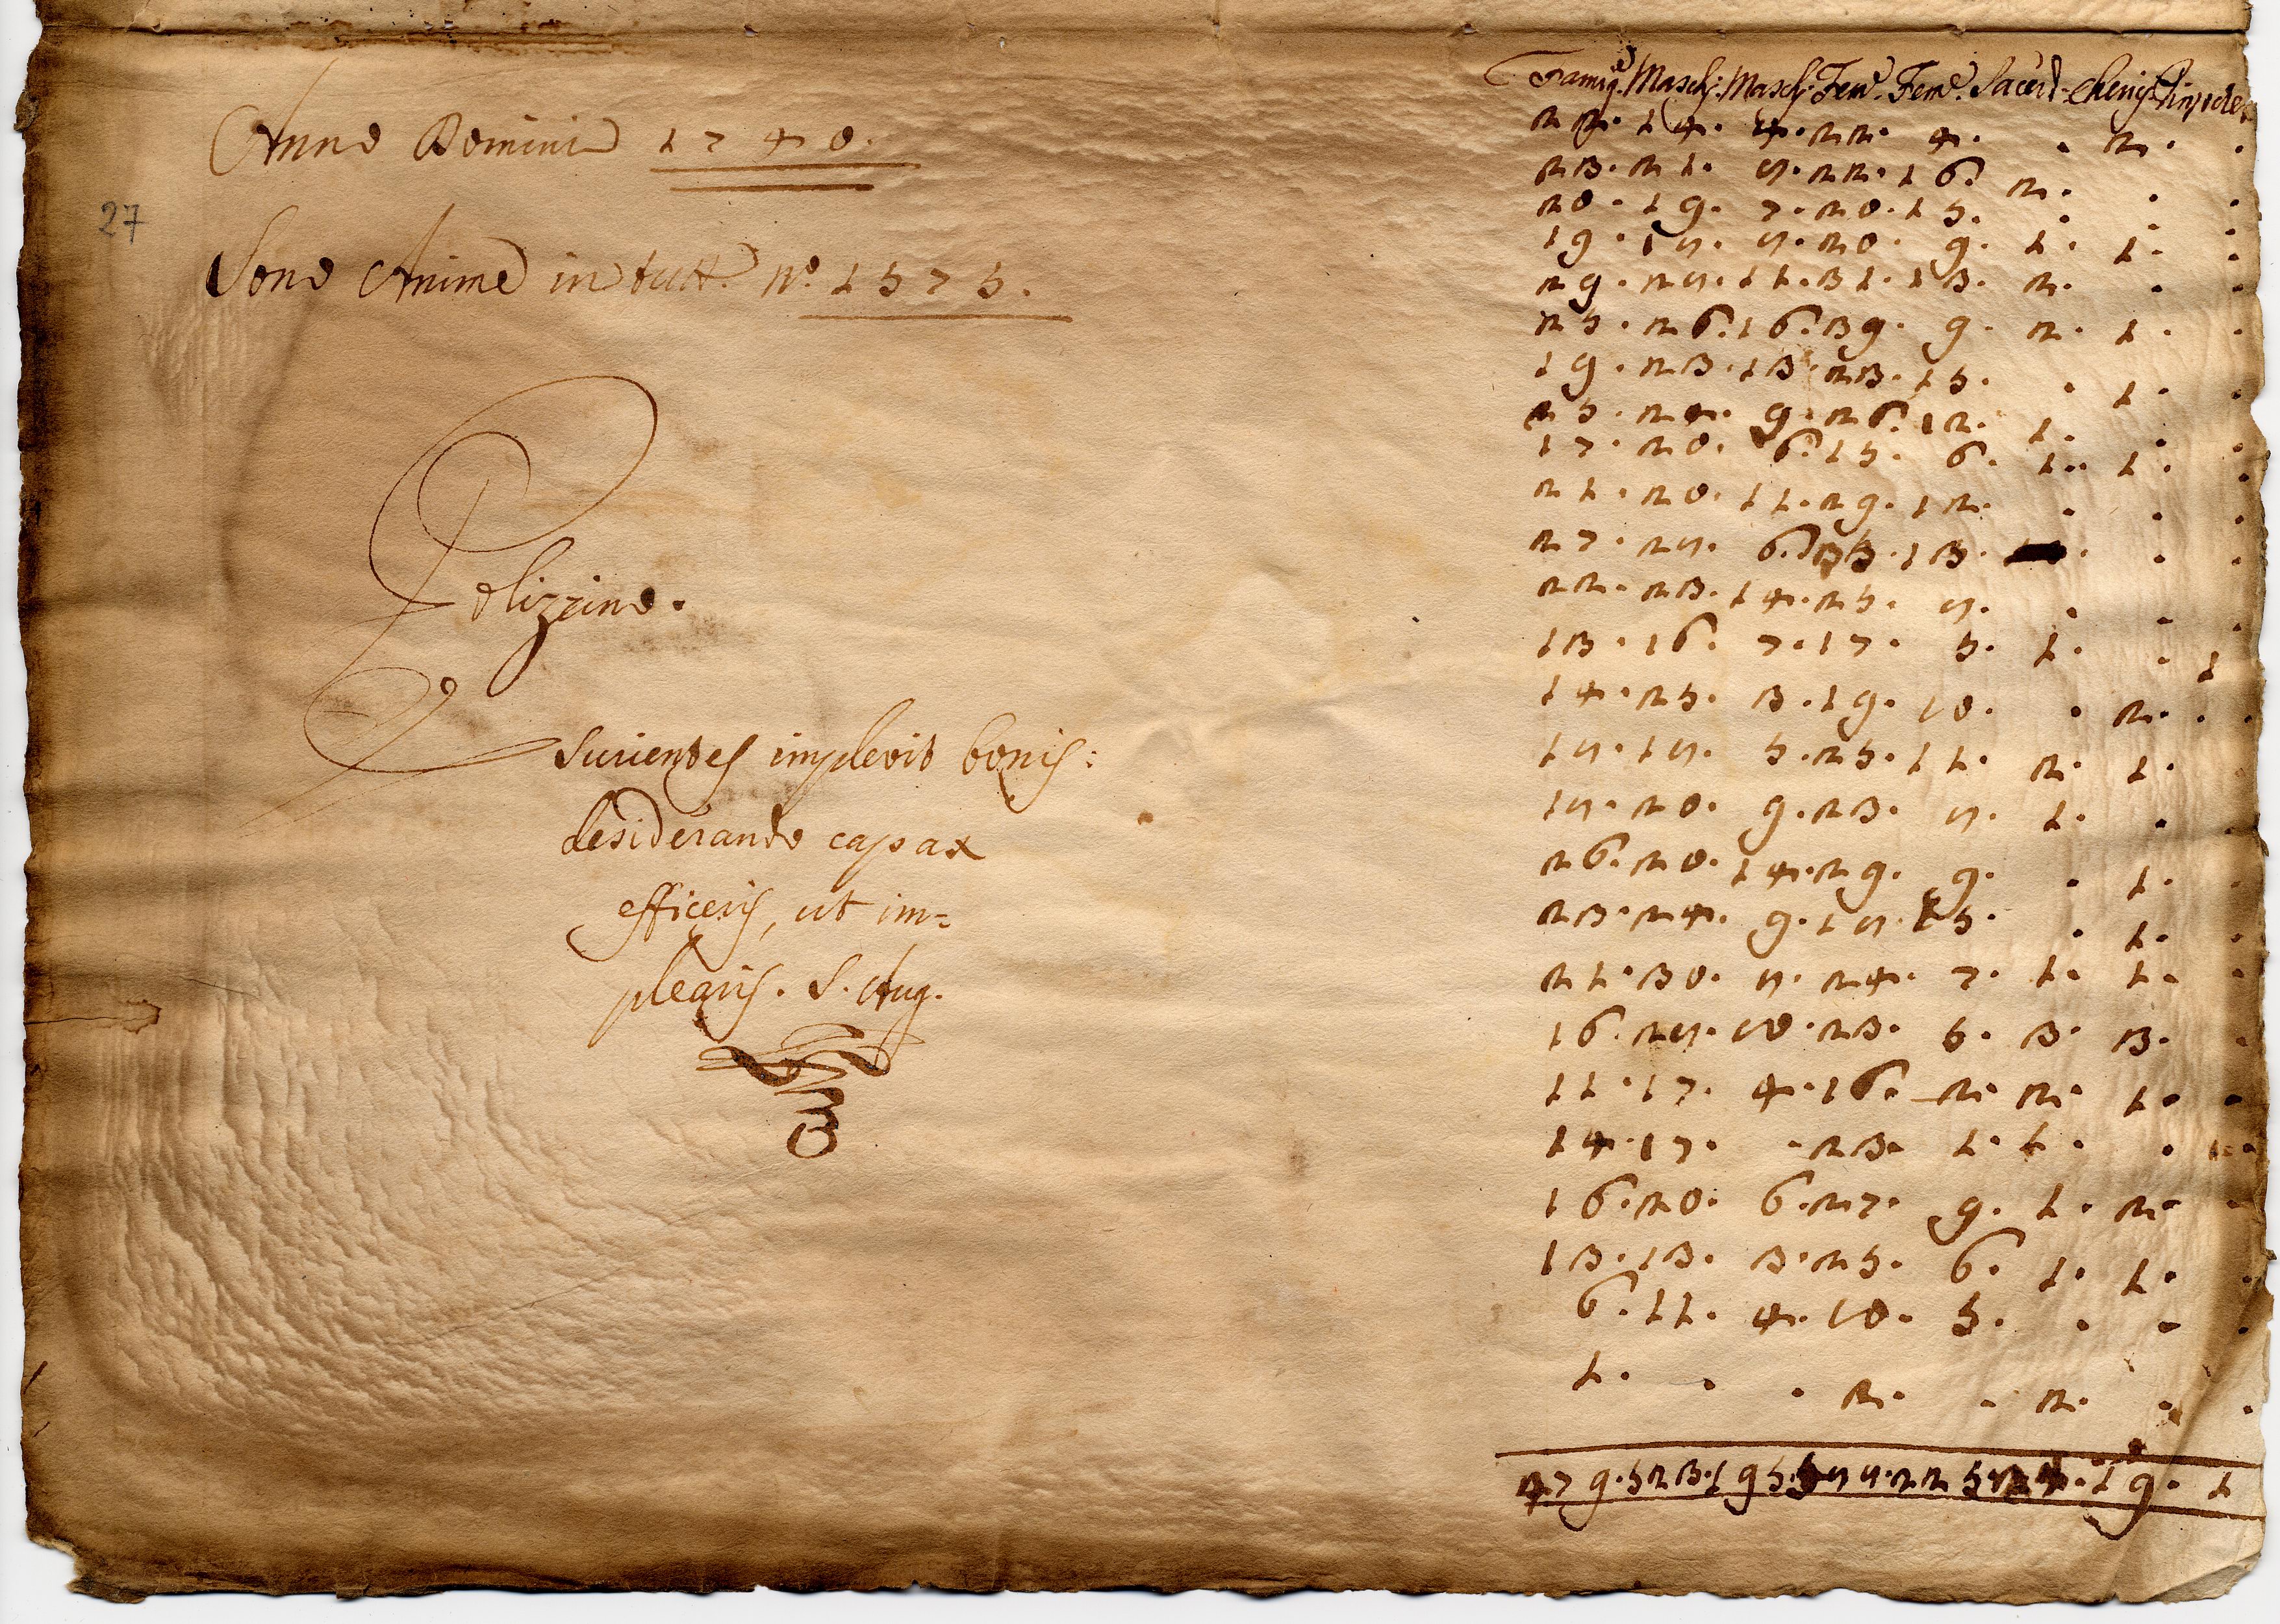 Anno Domini 1740.
27
Sono Anime in tutt. N.º 1575.
Polizzino.
Esurientes implevit bonis:
desiderando capax
efficeris, ut im=
plearis. S. Aug.
Famig.e Maschj. Maschj. Fem.e Fem.e Sacerd.
22. 14. 4. 22. 4. . 2. .
23. 21. 8. 22. 16. 2. . .
20. 19. 7. 20. 15. . . .
19. 18. 8. 20. 9. 1. 1. .
29. 28. 11. 31. 13. 2. . .
25. 26. 16. 39. 9. 2. 1. .
19. 23. 13. 23. 15. . 1. .
25. 24. 9. 26. 12. 1. . .
17. 20. 6. 15. 6. 1. 1. .
21. 20. 11. 29. 12. . . .
27. 28. 6. 35. 13. . . .
22. 23. 14. 25. 8. . . .
13. 16. 7. 17. 5. 1. . 1
14. 25. 3. 19. 10. . 2. .
18. 18. 5. 25. 11. 2. 1. .
18. 20. 9. 23. 8. 1. . .
26. 20. 14. 29. 9. . 1. .
23. 24. 9. 18. 15. . 1. .
21. 30. 8. 24. 7. 1. 1. .
16. 28. 10. 23. 5. 3. 3. .
11. 17. 4. 16. 2. 2. 1. .
14. 17. . 23. 1. 1. . .
16. 20. 6. 27. 9. 1. 2. .
13. 13. 3. 25. 6. 1. 1. .
6. 11. 4. 10. 5. . . .
1. . . 2. . 2. . .
479. 523. 195. 588. 225. 24. 19. 1